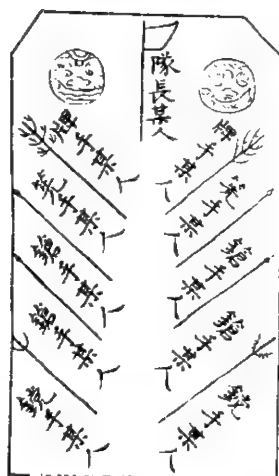 隊長某人
牌手某人
筅手某人
鎗手某人
鎗手某人
手某人
牌手某人
筅手某人
鎗手某人
鎗手某人
手某人